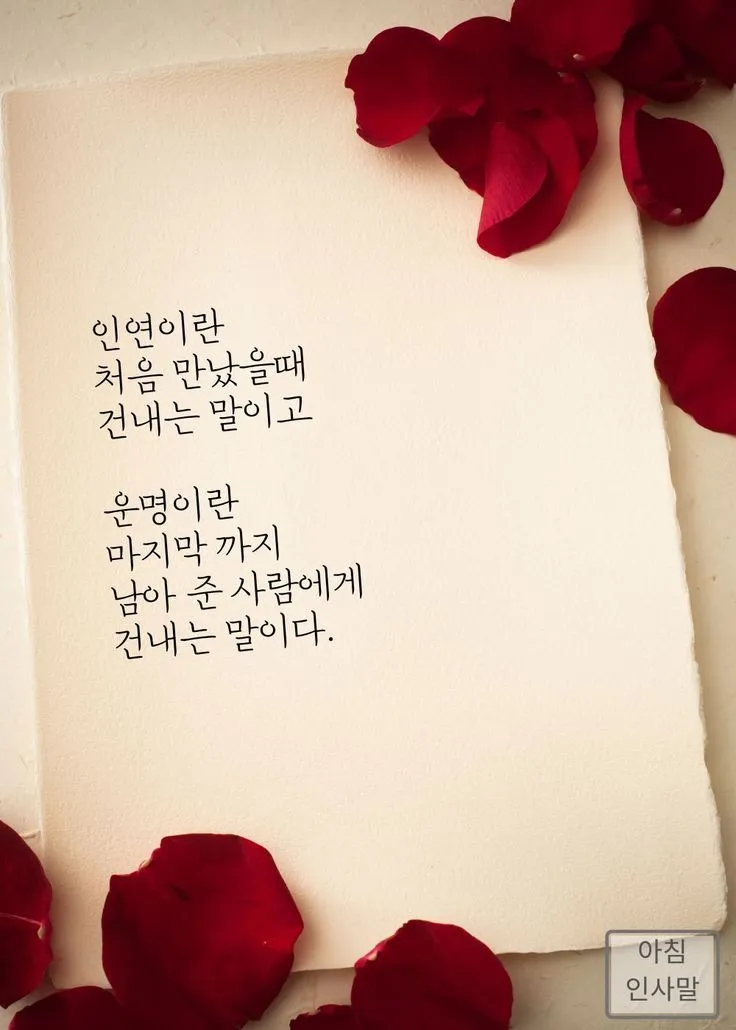 인연이란
처음 만났을때
건내는 말이고
운명이란
마지막 까지
남아 준 사람에게
건내는 말이다.
아침
인사말